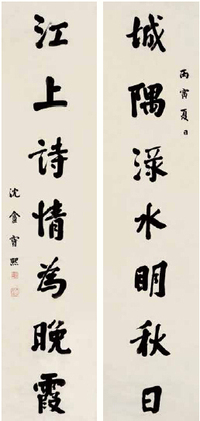 城隅渌水明秋日
丙寅夏日
江上詩情為晚霞
沈盦寶熙